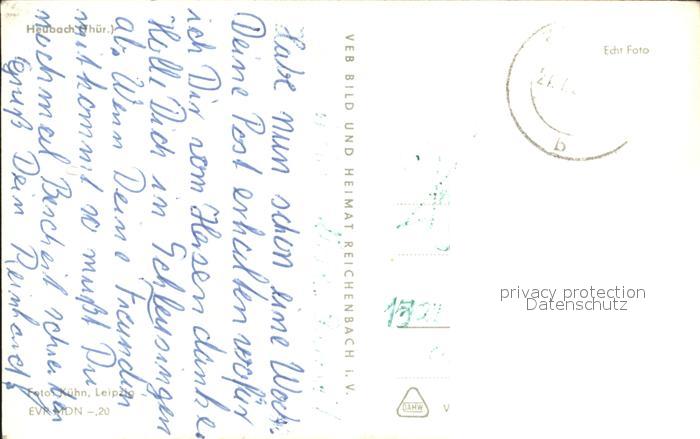 Heubach (Thür.)
Habe nun schon eine Woche
Deine Post erhalten wofür
ich Dir vom Herzen danke.
Helle Dich in Schleusingen
ab. Wenn Deine Freundin
mitkommt so mußt Du
nochmal Bescheit schreiben
Gruß Dein Reinhard
Foto: Kühn, Leipzig
EVP MDN -,20
VEB BILD UND HEIMAT REICHENBACH i. V.
Echt Foto
b
privacy protection
Datenschutz
DAHW
V